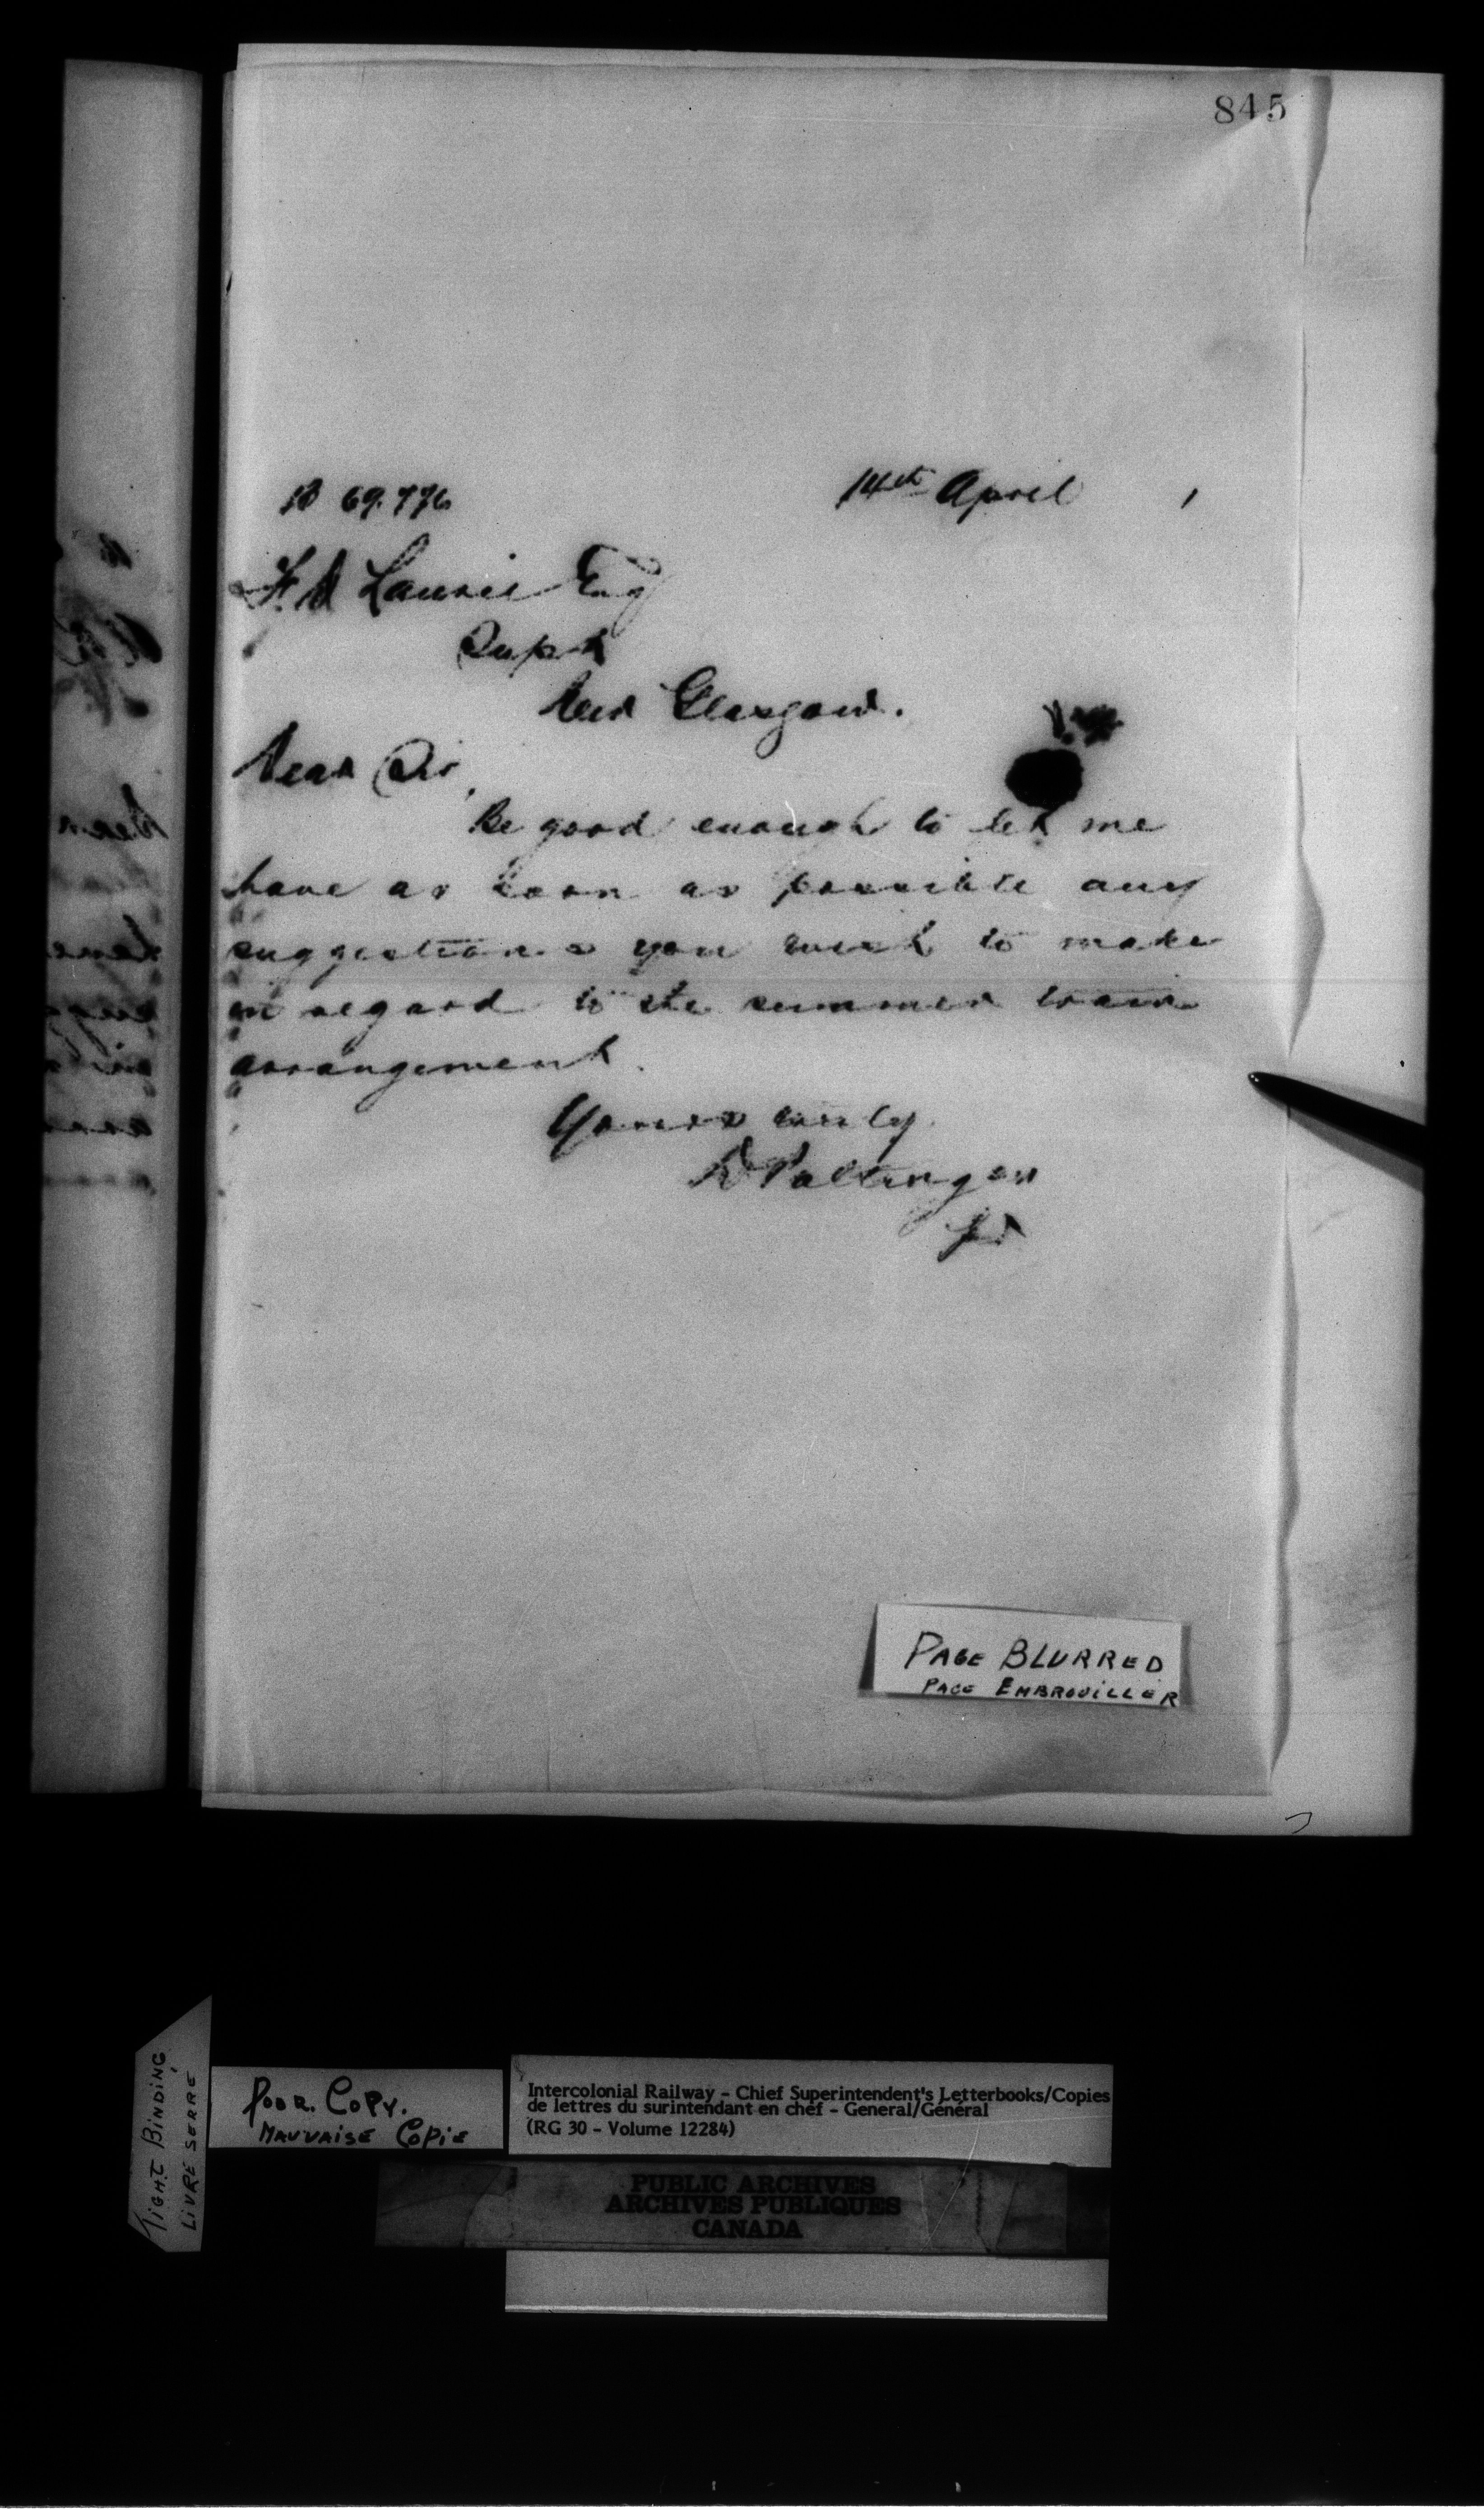 845
14th April
B 69.776
Laurie Esq
Supt
New Glasgow.
Dear Sir,
Be good enough to let me
have as soon as possible any
suggestions you wish to make
in regard to the summer train
arrangement.
Yours truly
D Pottinger
PAGE BLURRED
PAGE EMBROUILLER
TIGHT BINDING
LIVRE SERRE
POOR COPY.
MAUVAISE COPIE
Intercolonial Railway – Chief Superintendent's Letterbooks/Copies
de lettres du surintendant en chef – General/Général
(RG 30 – Volume 12284)
PUBLIC ARCHIVES
ARCHIVES PUBLIQUES
CANADA